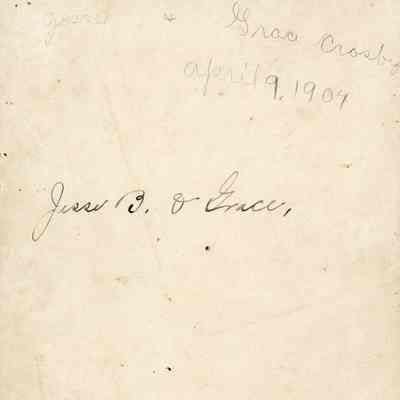 & Grac Crosby
april 9, 1904
Jesse B. & Grace,